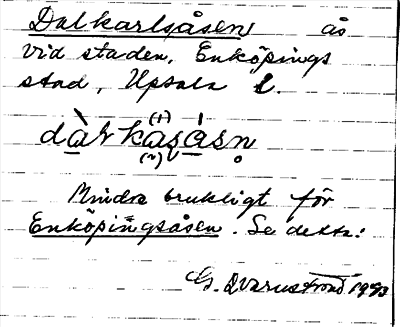 Dalkarlsåsen ås
vid staden, Enköpings
stad, Upsala l.
Mindre brukligt för
Enköpingsåsen. Se detta!
G. Warnstrand 1993